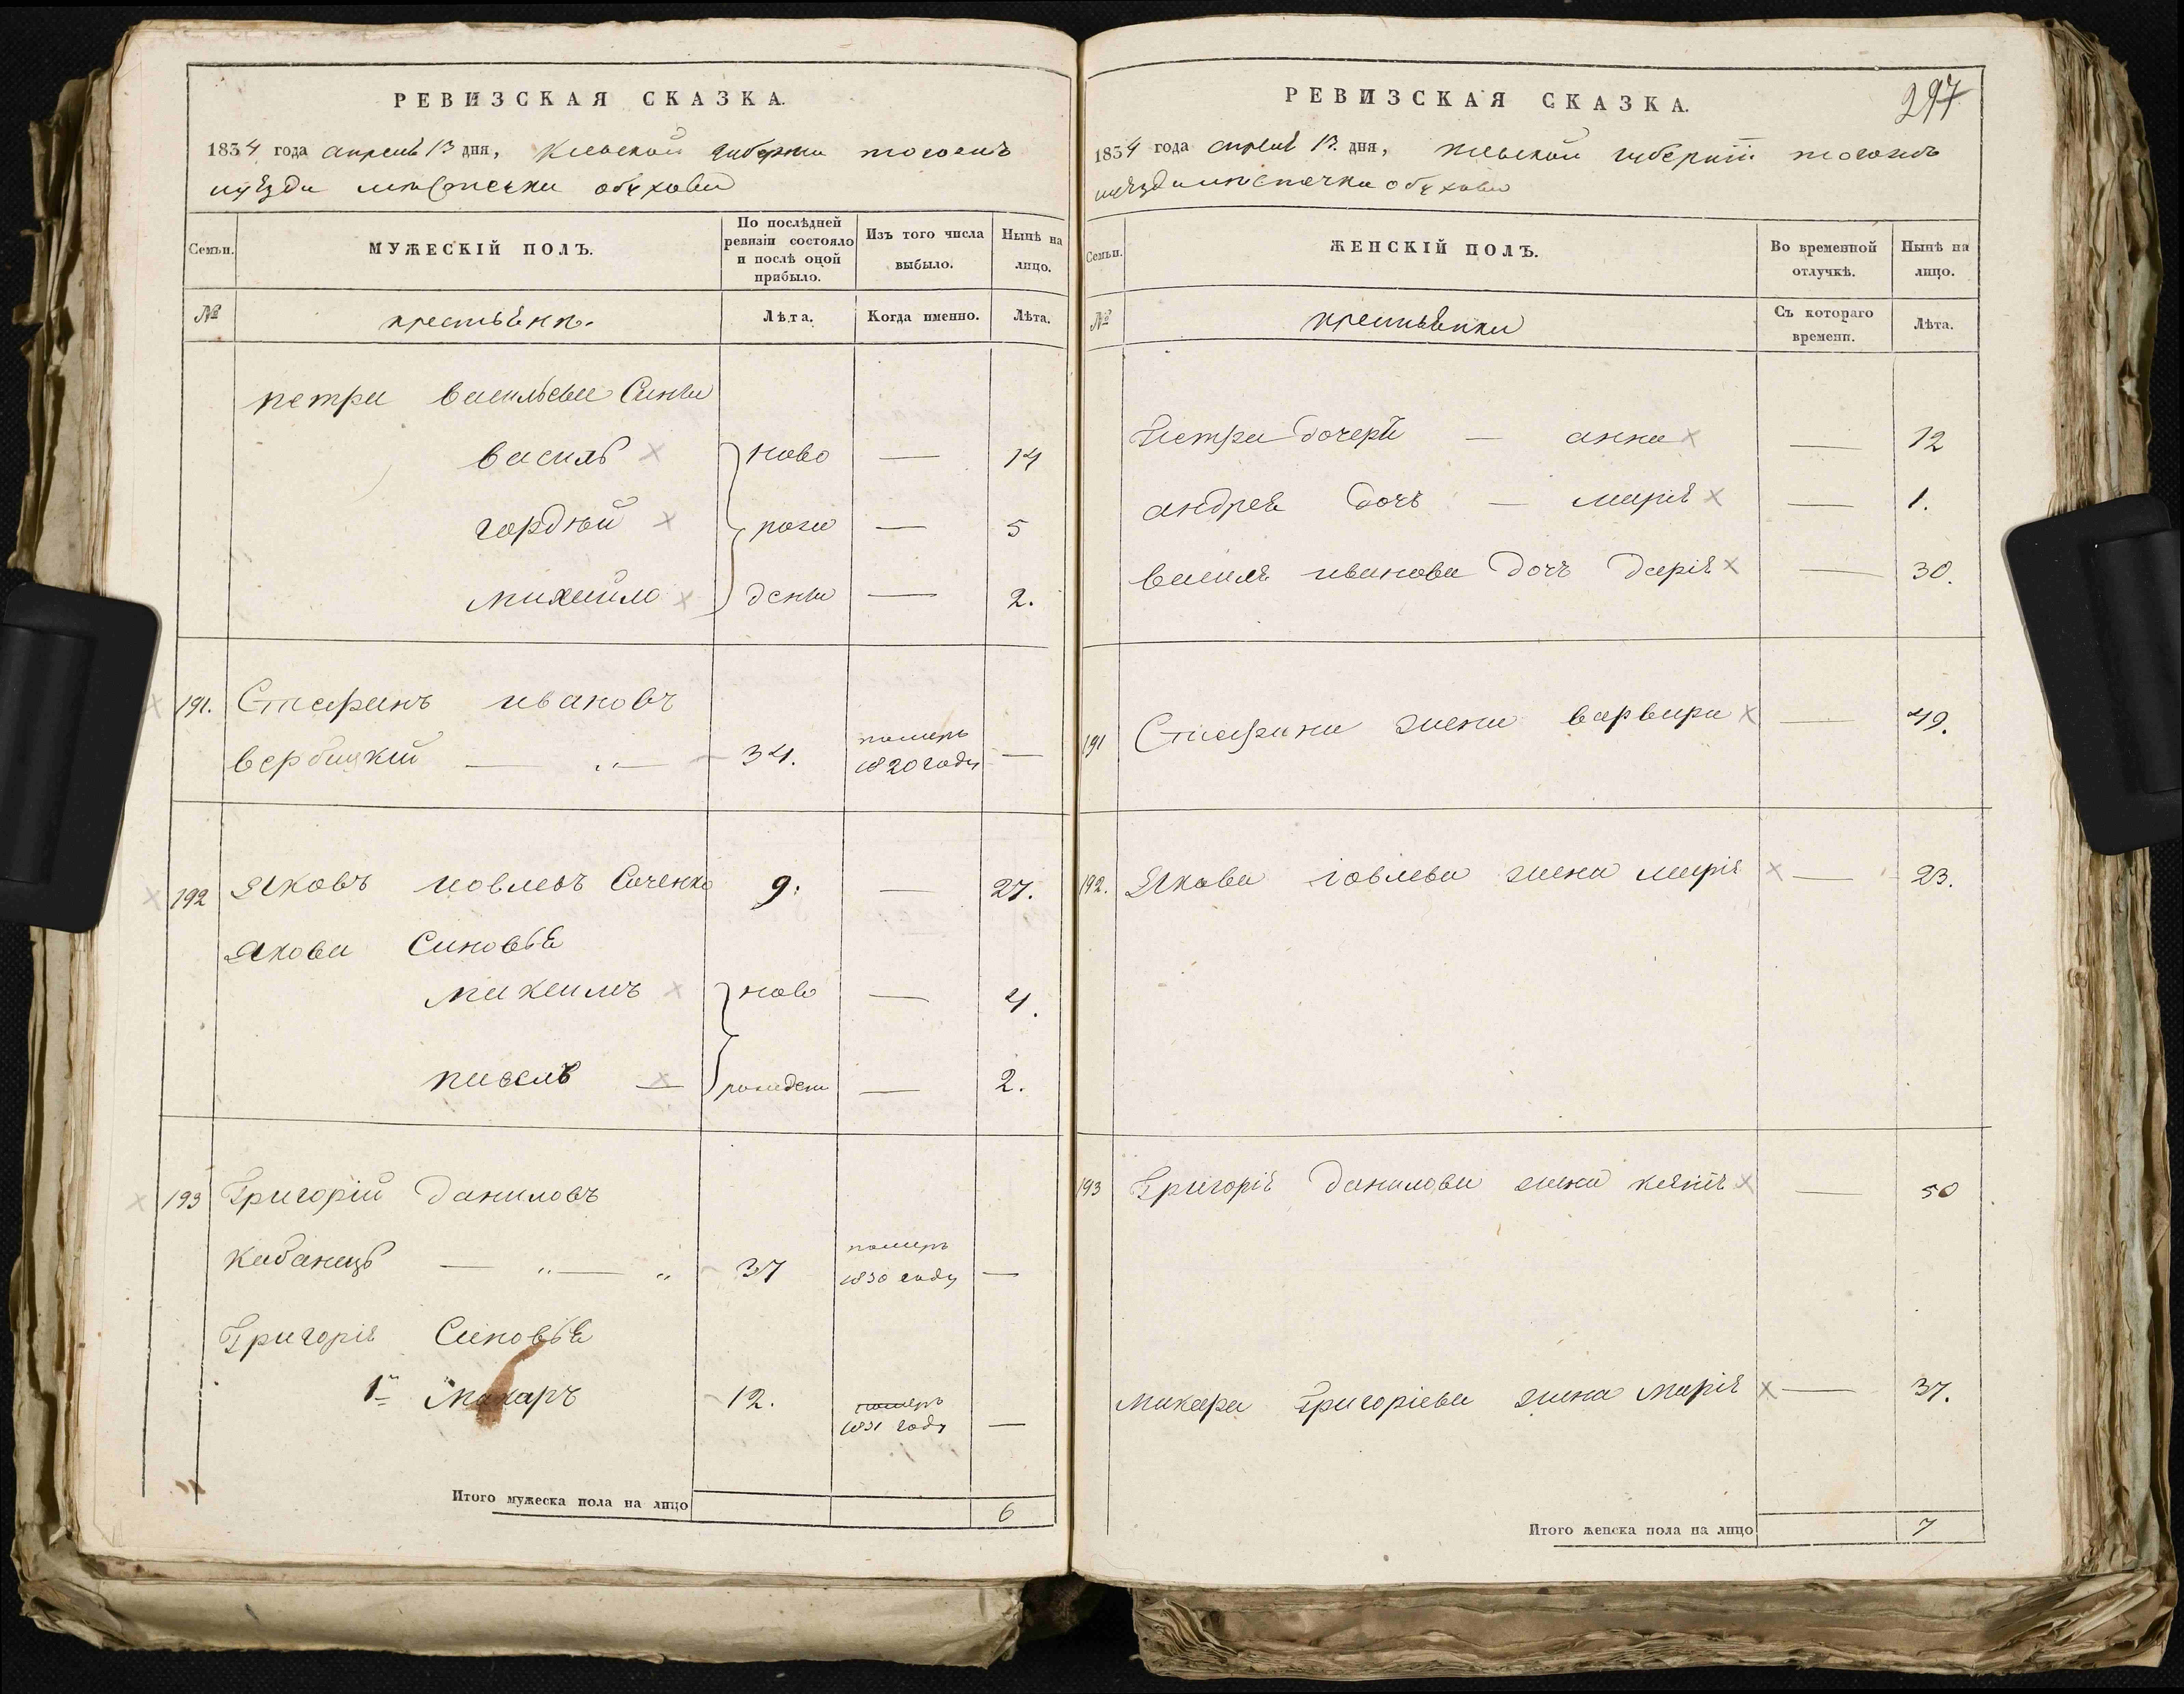 РЕВИЗСКАЯ СКАЗКА.
1834 года апреля 13 дня, Киевской губернии тогожъ
уѣзда мѣстечка обухова
Семьи.
МУЖЕСКІЙ ПОЛЪ.
По послѣдней ревизіи состояло и послѣ оной прибыло.
Изъ того числа выбыло.
Нынѣ на лицо.
№
крестьяне.
Лѣта.
Когда именно.
Лѣта.
петра васильева Сини
василь ново — 14
гордѣй рож — 5
михайло дени — 2.
191. Стефанъ ивановъ
вербицкій — 34. померъ 1820 году —
192 Яковъ иовлевъ Саченко 9. — 27.
Якова Синовья
михаилъ ново — 4.
павелъ — рожден — 2.
193 Григорій даниловъ
кабанецъ — 37 померъ 1830 году —
Григорія Синовья
1й макаръ 12. померъ 1831 году —
Итого мужеска пола на лицо 6
297
РЕВИЗСКАЯ СКАЗКА.
1834 года апреля 13. дня, киевской губерніи тогожъ
уѣзда мѣстечка обухова
Семьи.
ЖЕНСКІЙ ПОЛЪ.
Во временной отлучкѣ.
Нынѣ на лицо.
№
крестьянки
Съ котораго времени.
Лѣта.
Петра дочери — анна — 12
андрея дочь — марія — 1.
василя иванова дочь дарія — 30.
191 Стефана жена варвара — 49.
192. Якова іовлева жена марія — 23.
193 Григорія данилова жена — 50
Макара григоріева жена марія — 37.
Итого женска пола на лицо 7